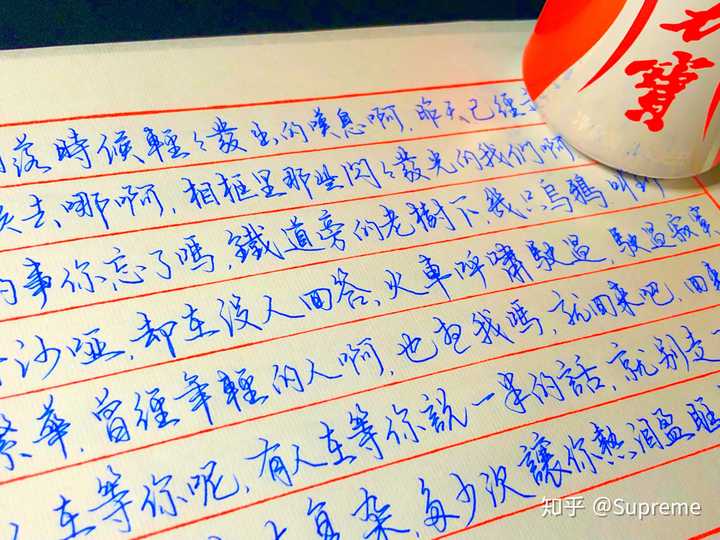 落時候輕々發出的嘆息啊,昨天已經
失去哪啊,相框里那些閃々發光的我們啊
的事你忘了嗎,鐵道旁的老樹下,幾只烏鴉叫到
沙啞,却在沒人回答,火車呼嘯駛過,駛過寂寞
繁華,曾經年輕的人啊,也想我嗎,就回來吧,回來
在等你呢,有人在等你說一半的話,就别走
复杂,多少次讓你熱泪盈眶
寶
知乎 @Supreme